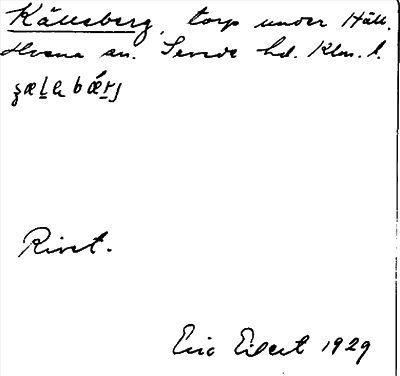 Källsberg, torp under Häll,
Hvena sn. Sevede hd. Klm. l.
Rivet.
Eric Elgert 1929